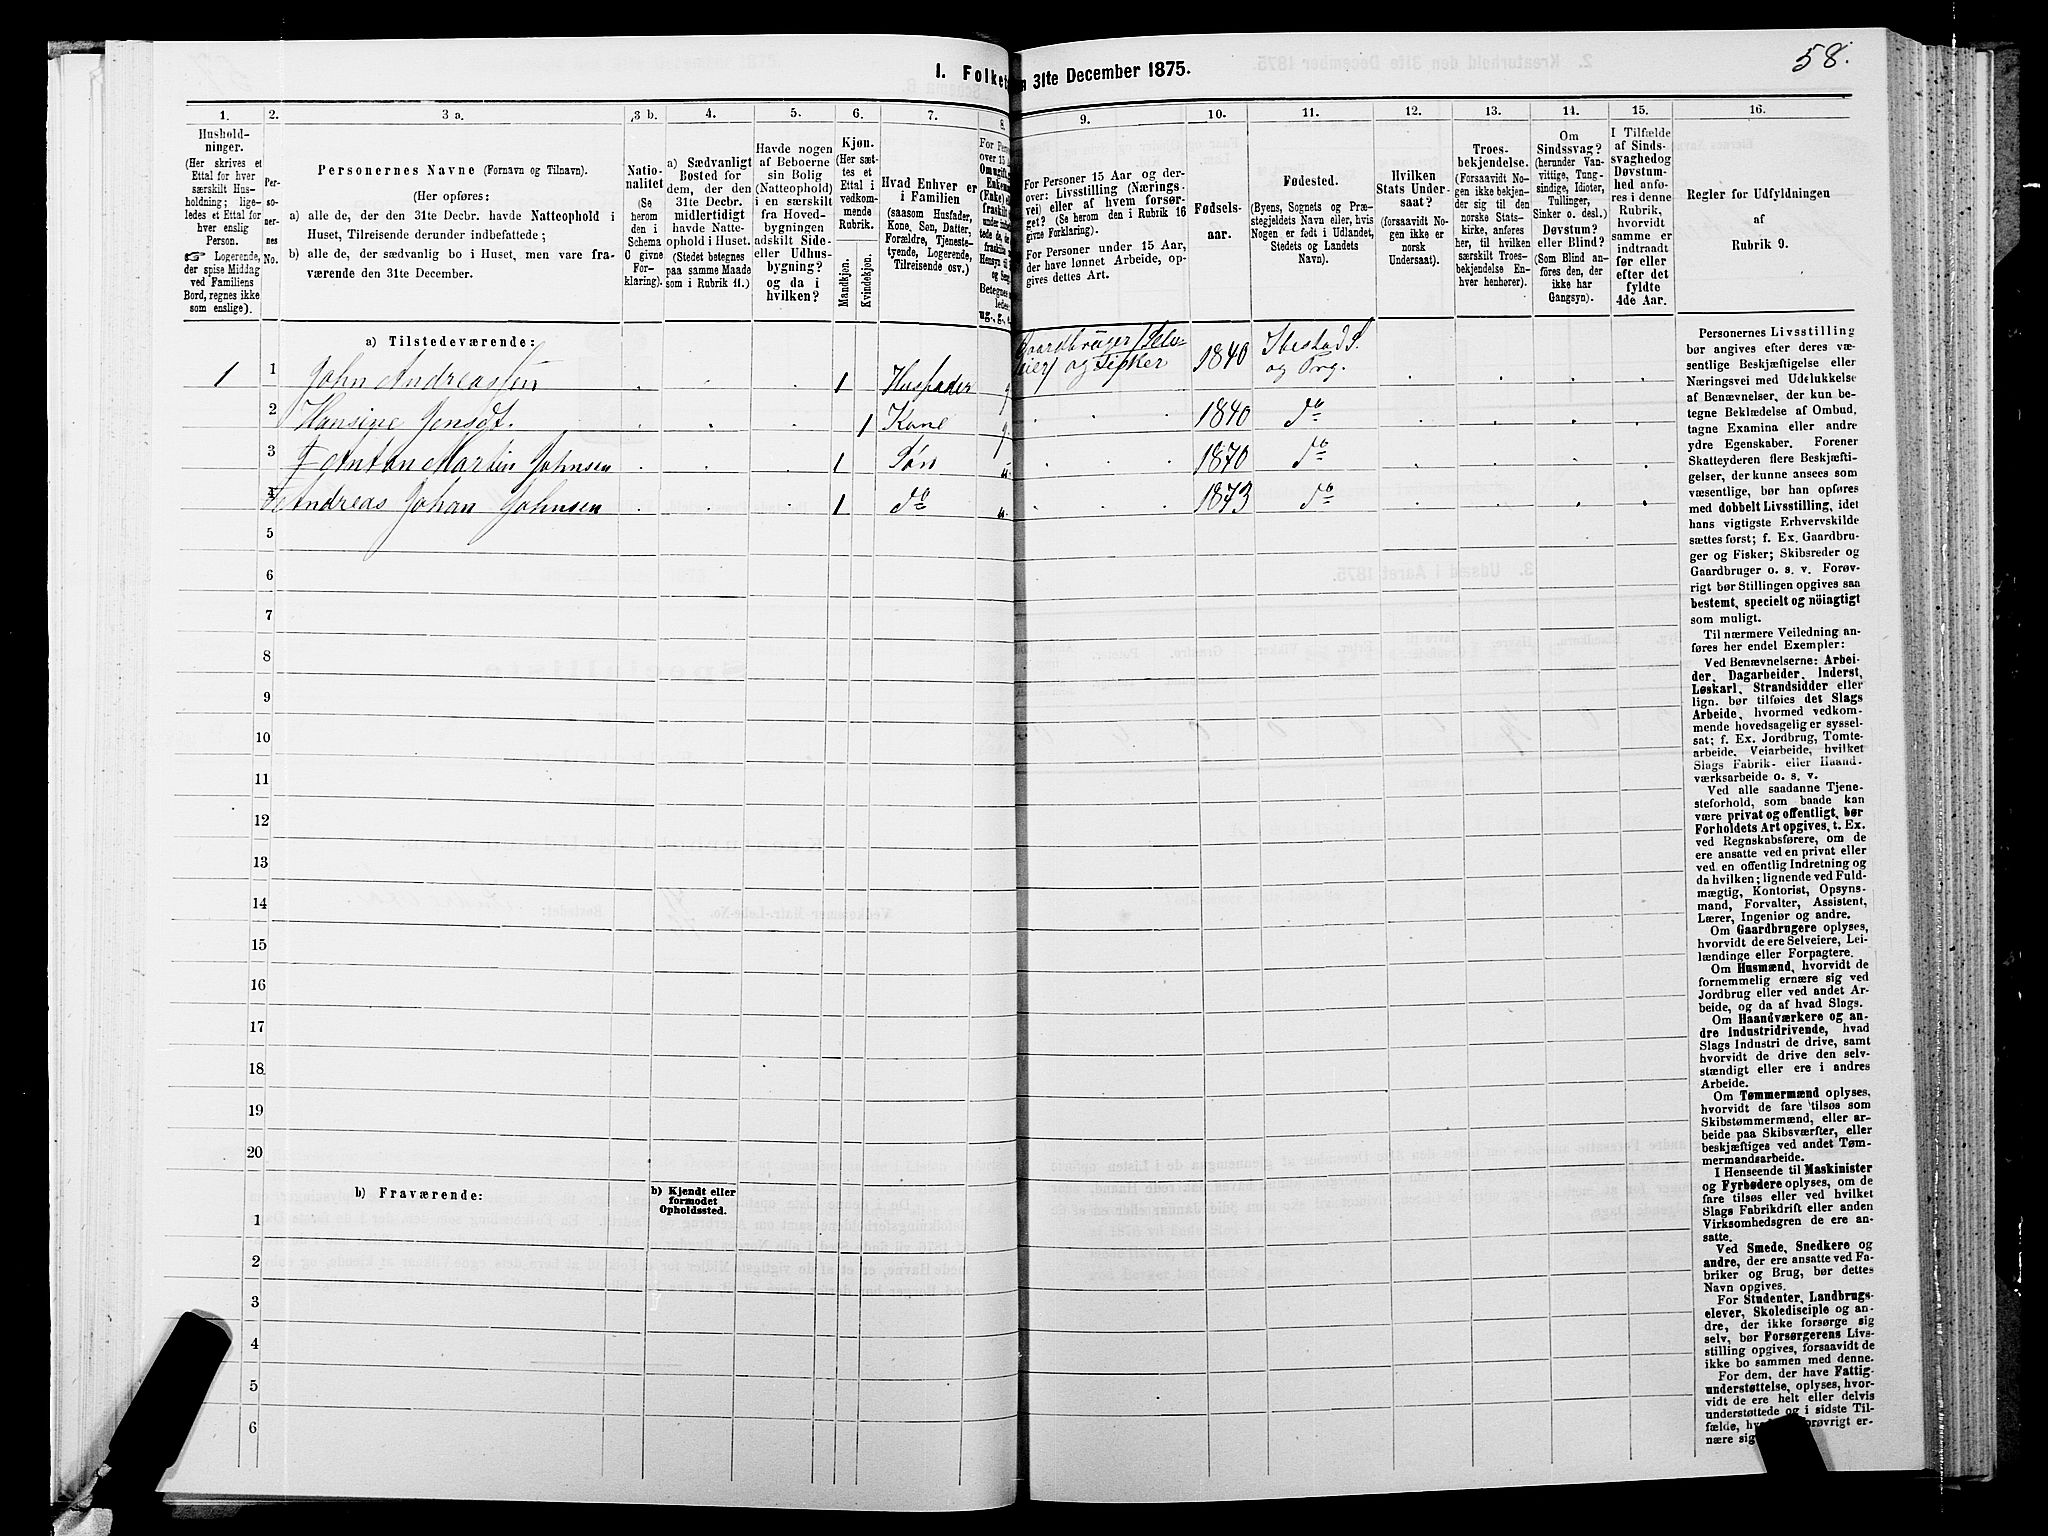 58.
I. Folket
n 31te December 1875.
1.
2.
3 a.
3 b.
4.
5.
6.
7.
8.
9.
10.
11.
12.
13.
14.
15.
16.
Hushold-
ninger.
(Her skrives et
Ettal for hver
særskilt Hus-
holdning; lige-
ledes et Ettal for
hver enslig
Person.
☞ Logerende,
der spise Middag
ved Familiens
Bord, regnes ikke
som enslige).
Per-
so-
ner-
nes
No.
Personernes Navne (Fornavn og Tilnavn).
(Her opføres:
a) alle de, der den 31te Decbr. havde Natteophold i
Huset, Tilreisende derunder indbefattede;
b) alle de, der sædvanlig bo i Huset, men vare fra-
værende den 31te December.
Natio-
nalitet
(Se
herom
den i
Schema
C givne
For-
klaring).
a) Sædvanligt
Bosted for
dem, der den
31te Decbr.
midlertidigt
havde Natte-
ophold i Huset.
(Stedet betegnes
paa samme Maade
som i Rubrik 11.)
Havde nogen
af Beboerne
sin Bolig
(Natteophold)
i en særskilt
fra Hoved-
bygningen
adskilt Side-
eller Udhus-
bygning?
og da i
hvilken?
Kjøn.
(Her sæt-
tes et
Ettal i
vedkom-
mende
Rubrik.
Mandkjøn.
Kvindekjøn.
Hvad Enhver er
i Familien
(saasom Husfader,
Kone, Søn, Datter,
Forældre, Tjeneste-
tyende, Logerende,
Tilreisende osv.)
For Pers
over 15
Om ugift, g
Enkem
(Enke)
fraskilt
ug., g.,
For Personer 15 Aar og der-
over: Livsstilling (Nærings-
vei) eller af hvem forsør-
get? (Se herom den i Rubrik 16
givne Forklaring).
For Personer under 15 Aar,
der have lønnet Arbeide, op-
gives dettes Art.
Fødsels-
aar.
Fødested.
(Byens, Sognets og Præ-
stegjeldets Navn eller, hvis
Nogen er født i Udlandet,
Stedets og Landets
Navn).
Hvilken
Stats Under-
saat?
(forsaavidt No-
gen ikke er
norsk
Undersaat).
Troes-
bekjendelse.
(Forsaavidt No-
gen ikke bekjen-
der sig til den
norske Stats-
kirke, anføres
her, til hvilken
særskilt Troes-
bekjendelse En-
hver henhører).
Om
Sindssvag?
(herunder Van-
vittige, Tung-
sindige, Idioter,
Tullinger,
Sinker o. desl.)
Døvstum?
eller Blind?
(Som Blind an-
føres den, der
ikke har
Gangsyn).
I Tilfælde
af Sinds-
svaghedog
Døvstum-
hed anfø-
res i denne
Rubrik,
hvorvidt
samme er
indtraadt
før eller
efter det
fyldte
4de Aar.
Regler for Udfyldningen
af
Rubrik 9.
a) Tilstedeværende:
1 1 John Andreassen 1 Husfader g Gaardbruger (Selv-
eier) og Fisker 1840 Ibestad S.
og Prg.
2 Hansine Jensdt. 1 Kone g 1840 do
3 Anton Martin Johnsen 1 Søn u. 1870 do
4 Andreas Johan Johnsen 1 do u. 1873 do
5
6
7
8
9
10
11
12
13
14
15
16
17
18
19
20
b) Fraværende:
b) Kjendt eller
formodet
Opholdssted.
1
2
3
4
5
6
Personernes Livsstilling
bør angives efter deres væ-
sentlige Beskjæftigelse eller
Næringsvei med Udelukkelse
af Benævnelser, der kun be-
tegne Beklædelse af Ombud,
tagne Examina eller andre
ydre Egenskaber. Forener
Skatteyderen flere Beskjæfti-
gelser, der kunne ansees som
væsentlige, bør han opføres
med dobbelt Livsstilling, idet
hans vigtigste Erhvervskilde
sættes først; f. Ex. Gaardbru-
ger og Fisker; Skibsreder og
Gaardbruger o. s. v. Forøv-
rigt bør Stillingen opgives saa
bestemt, specielt og nöiagtigt
som muligt.
Til nærmere Veiledning an-
føres her endel Exempler:
Ved Benævnelserne: Arbei-
der, Dagarbeider, Inderst,
Løskarl, Strandsidder eller
lign. bør tilføies det Slags
Arbeide, hvormed vedkom-
mende hovedsagelig er syssel-
sat; f. Ex. Jordbrug, Tomte-
arbeide, Veiarbeide, hvilket
Slags Fabrik- eller Haand-
værksarbeide o. s. v.
Ved alle saadanne Tjene-
steforhold, som baade kan
være privat og offentligt, bør
Forholdets Art opgives, t. Ex.
ved Regnskabsførere, om de
ere ansatte ved en privat eller
ved en offentlig Indretning og
da hvilken; lignende ved Fuld-
mægtig, Kontorist, Opsyns-
mand, Forvalter, Assistent,
Lærer, Ingeniør og andre.
Om Gaardbrugere oplyses,
hvorvidt de ere Selveiere, Lei-
lændinge eller Forpagtere.
Om Husmænd, hvorvidt de
fornemmelig ernære sig ved
Jordbrug eller ved andet Ar-
beide, og da af hvad Slags.
Om Haandværkere og an-
dre Industridrivende, hvad
Slags Industri de drive, samt
hvorvidt de drive den selv-
stændigt eller ere i andres
Arbeide.
Om Tømmermænd oplyses,
hvorvidt de fare tilsøs som
Skibstømmermænd, eller ar-
beide paa Skibsværfter, eller
beskjæftiges ved andet Tøm-
mermandsarbeide.
I Henseende til Maskinister
og Fyrbødere oplyses, om de
fare tilsøs eller ved hvilket
Slags Fabrikdrift eller anden
Virksomhedsgren de ere an-
satte.
Ved Smede, Snedkere og
andre, der ere ansatte ved Fa-
briker og Brug, bør dettes
Navn opgives.
For Studenter, Landbrugs-
elever, Skoledisciple og an-
dre, der ikke forsørge sig
selv, bør Forsørgerens Livs-
stilling opgives, forsaavidt de
ikke bo sammen med denne.
For dem, der have Fattig-
understøttelse, oplyses, hvor-
vidt de ere helt eller delvis
understøttede og i sidste Til-
fælde, forøvrigt er-
nære sig